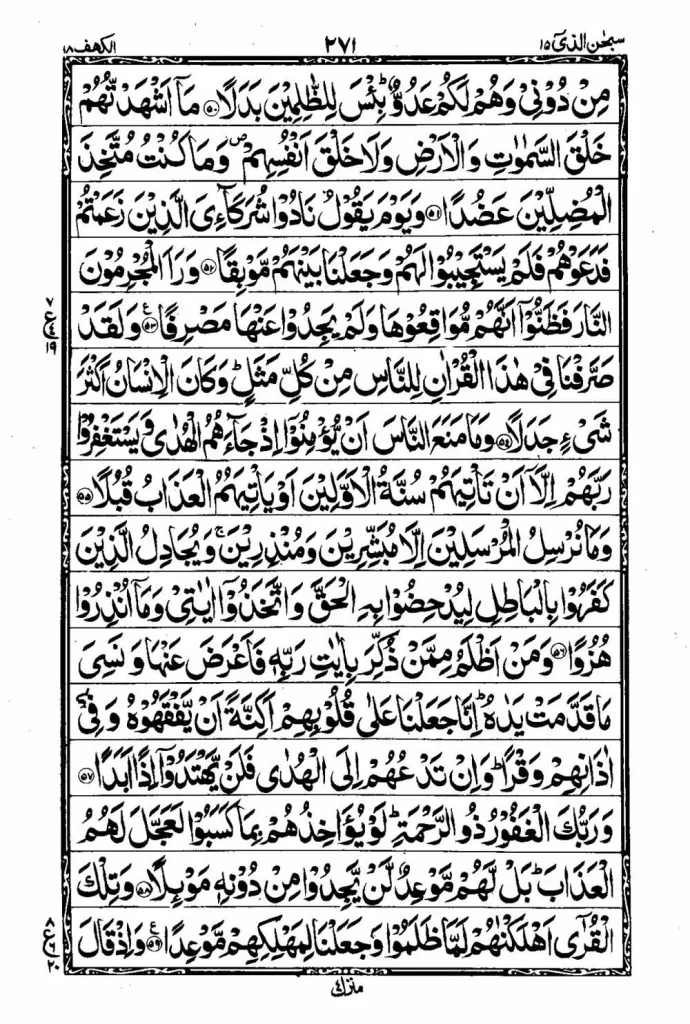 سبحٰن الذیٓ ۱۵ ۲۷۱ الکهف ۱۸
مِنْ دُوْنِیْ وَهُمْ لَكُمْ عَدُوٌّ ؕ بِئْسَ لِلظّٰلِمِیْنَ بَدَلًا ﴿۵۰﴾ مَاۤ اَشْهَدْتُّهُمْ
خَلْقَ السَّمٰوٰتِ وَالْاَرْضِ وَلَا خَلْقَ اَنْفُسِهِمْ ۪ وَمَا كُنْتُ مُتَّخِذَ
الْمُضِلِّیْنَ عَضُدًا ﴿۵۱﴾ وَیَوْمَ یَقُوْلُ نَادُوْا شُرَكَآءِیَ الَّذِیْنَ زَعَمْتُمْ
فَدَعَوْهُمْ فَلَمْ یَسْتَجِیْبُوْا لَهُمْ وَجَعَلْنَا بَیْنَهُمْ مَّوْبِقًا ﴿۵۲﴾ وَرَاَ الْمُجْرِمُوْنَ
النَّارَ فَظَنُّوْۤا اَنَّهُمْ مُّوَاقِعُوْهَا وَلَمْ یَجِدُوْا عَنْهَا مَصْرِفًا ﴿۵۳﴾ ع وَلَقَدْ
۷ ع ۴ ۱۹
صَرَّفْنَا فِیْ هٰذَا الْقُرْاٰنِ لِلنَّاسِ مِنْ كُلِّ مَثَلٍ ؕ وَكَانَ الْاِنْسَانُ اَكْثَرَ
شَیْءٍ جَدَلًا ﴿۵۴﴾ وَمَا مَنَعَ النَّاسَ اَنْ یُّؤْمِنُوْۤا اِذْ جَآءَهُمُ الْهُدٰی وَیَسْتَغْفِرُوْا
رَبَّهُمْ اِلَّاۤ اَنْ تَاْتِیَهُمْ سُنَّةُ الْاَوَّلِیْنَ اَوْ یَاْتِیَهُمُ الْعَذَابُ قُبُلًا ﴿۵۵﴾
وَمَا نُرْسِلُ الْمُرْسَلِیْنَ اِلَّا مُبَشِّرِیْنَ وَمُنْذِرِیْنَ ۚ وَیُجَادِلُ الَّذِیْنَ
كَفَرُوْا بِالْبَاطِلِ لِیُدْحِضُوْا بِهِ الْحَقَّ وَاتَّخَذُوْۤا اٰیٰتِیْ وَمَاۤ اُنْذِرُوْا
هُزُوًا ﴿۵۶﴾ وَمَنْ اَظْلَمُ مِمَّنْ ذُكِّرَ بِاٰیٰتِ رَبِّهٖ فَاَعْرَضَ عَنْهَا وَنَسِیَ
مَا قَدَّمَتْ یَدٰهُ ؕ اِنَّا جَعَلْنَا عَلٰی قُلُوْبِهِمْ اَكِنَّةً اَنْ یَّفْقَهُوْهُ وَفِیْۤ
اٰذَانِهِمْ وَقْرًا ؕ وَاِنْ تَدْعُهُمْ اِلَی الْهُدٰی فَلَنْ یَّهْتَدُوْۤا اِذًا اَبَدًا ﴿۵۷﴾
وَرَبُّكَ الْغَفُوْرُ ذُو الرَّحْمَةِ ؕ لَوْ یُؤَاخِذُهُمْ بِمَا كَسَبُوْا لَعَجَّلَ لَهُمُ
الْعَذَابَ ؕ بَلْ لَّهُمْ مَّوْعِدٌ لَّنْ یَّجِدُوْا مِنْ دُوْنِهٖ مَوْىِٕلًا ﴿۵۸﴾ وَتِلْكَ
الْقُرٰۤی اَهْلَكْنٰهُمْ لَمَّا ظَلَمُوْا وَجَعَلْنَا لِمَهْلِكِهِمْ مَّوْعِدًا ﴿۵۹﴾ ع وَاِذْ قَالَ
۸ ع ۶ ۲۰
منزل ۴